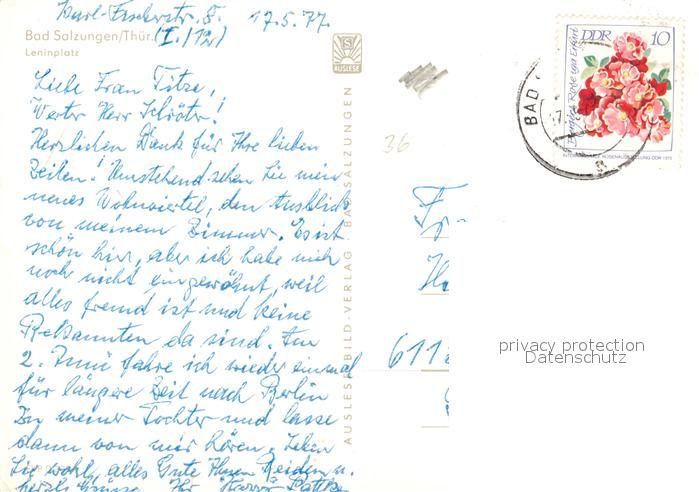 Karl-Fischerstr. 8. 17.5.77.
Bad Salzungen/Thür. (I./12)
Leninplatz
AUSLESE
Liebe Frau Titze,
Werter Herr Schröter!
Herzlichen Dank für Ihre lieben
Zeilen! Umstehend sehen Sie mein
neues Wohnviertel, den Ausblick
von meinem Zimmer. Es ist
schön hier, aber ich habe mich
noch nicht eingewöhnt, weil
alles fremd ist und keine
Bekannten da sind. Am
2. Juni fahre ich wieder einmal
für längere Zeit nach Berlin
zu meiner Tochter und lasse
dann von mir hören. Leben
Sie wohl, alles Gute Ihnen Beiden u.
herzl. Grüsse Ihr Harry
AUSLESE-BILD-VERLAG BAD SALZUNGEN
36
Fr
611
DDR 10
Rose von Erfurt
INTERNATIONALE ROSENAUSSTELLUNG DDR 1972
BAD
17.
privacy protection
Datenschutz